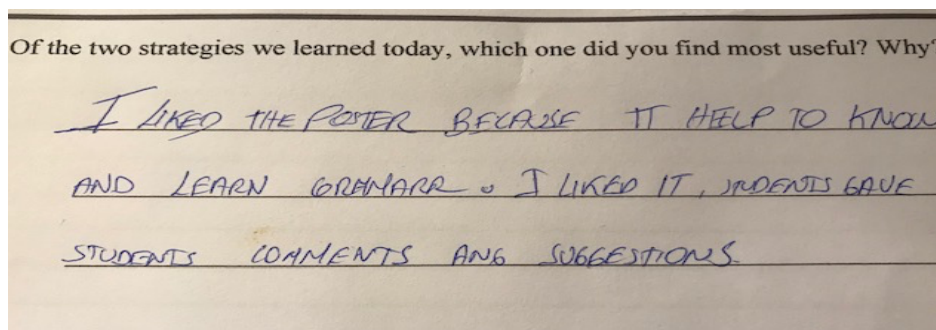 Of the two strategies we learned today, which one did you find most useful? Why?
I LIKED THE POSTER BECAUSE IT HELP TO KNOW
AND LEARN GRAMARR. I LIKED IT, STUDENTS GAVE
STUDENTS COMMENTS ANG SUGGESTIONS.